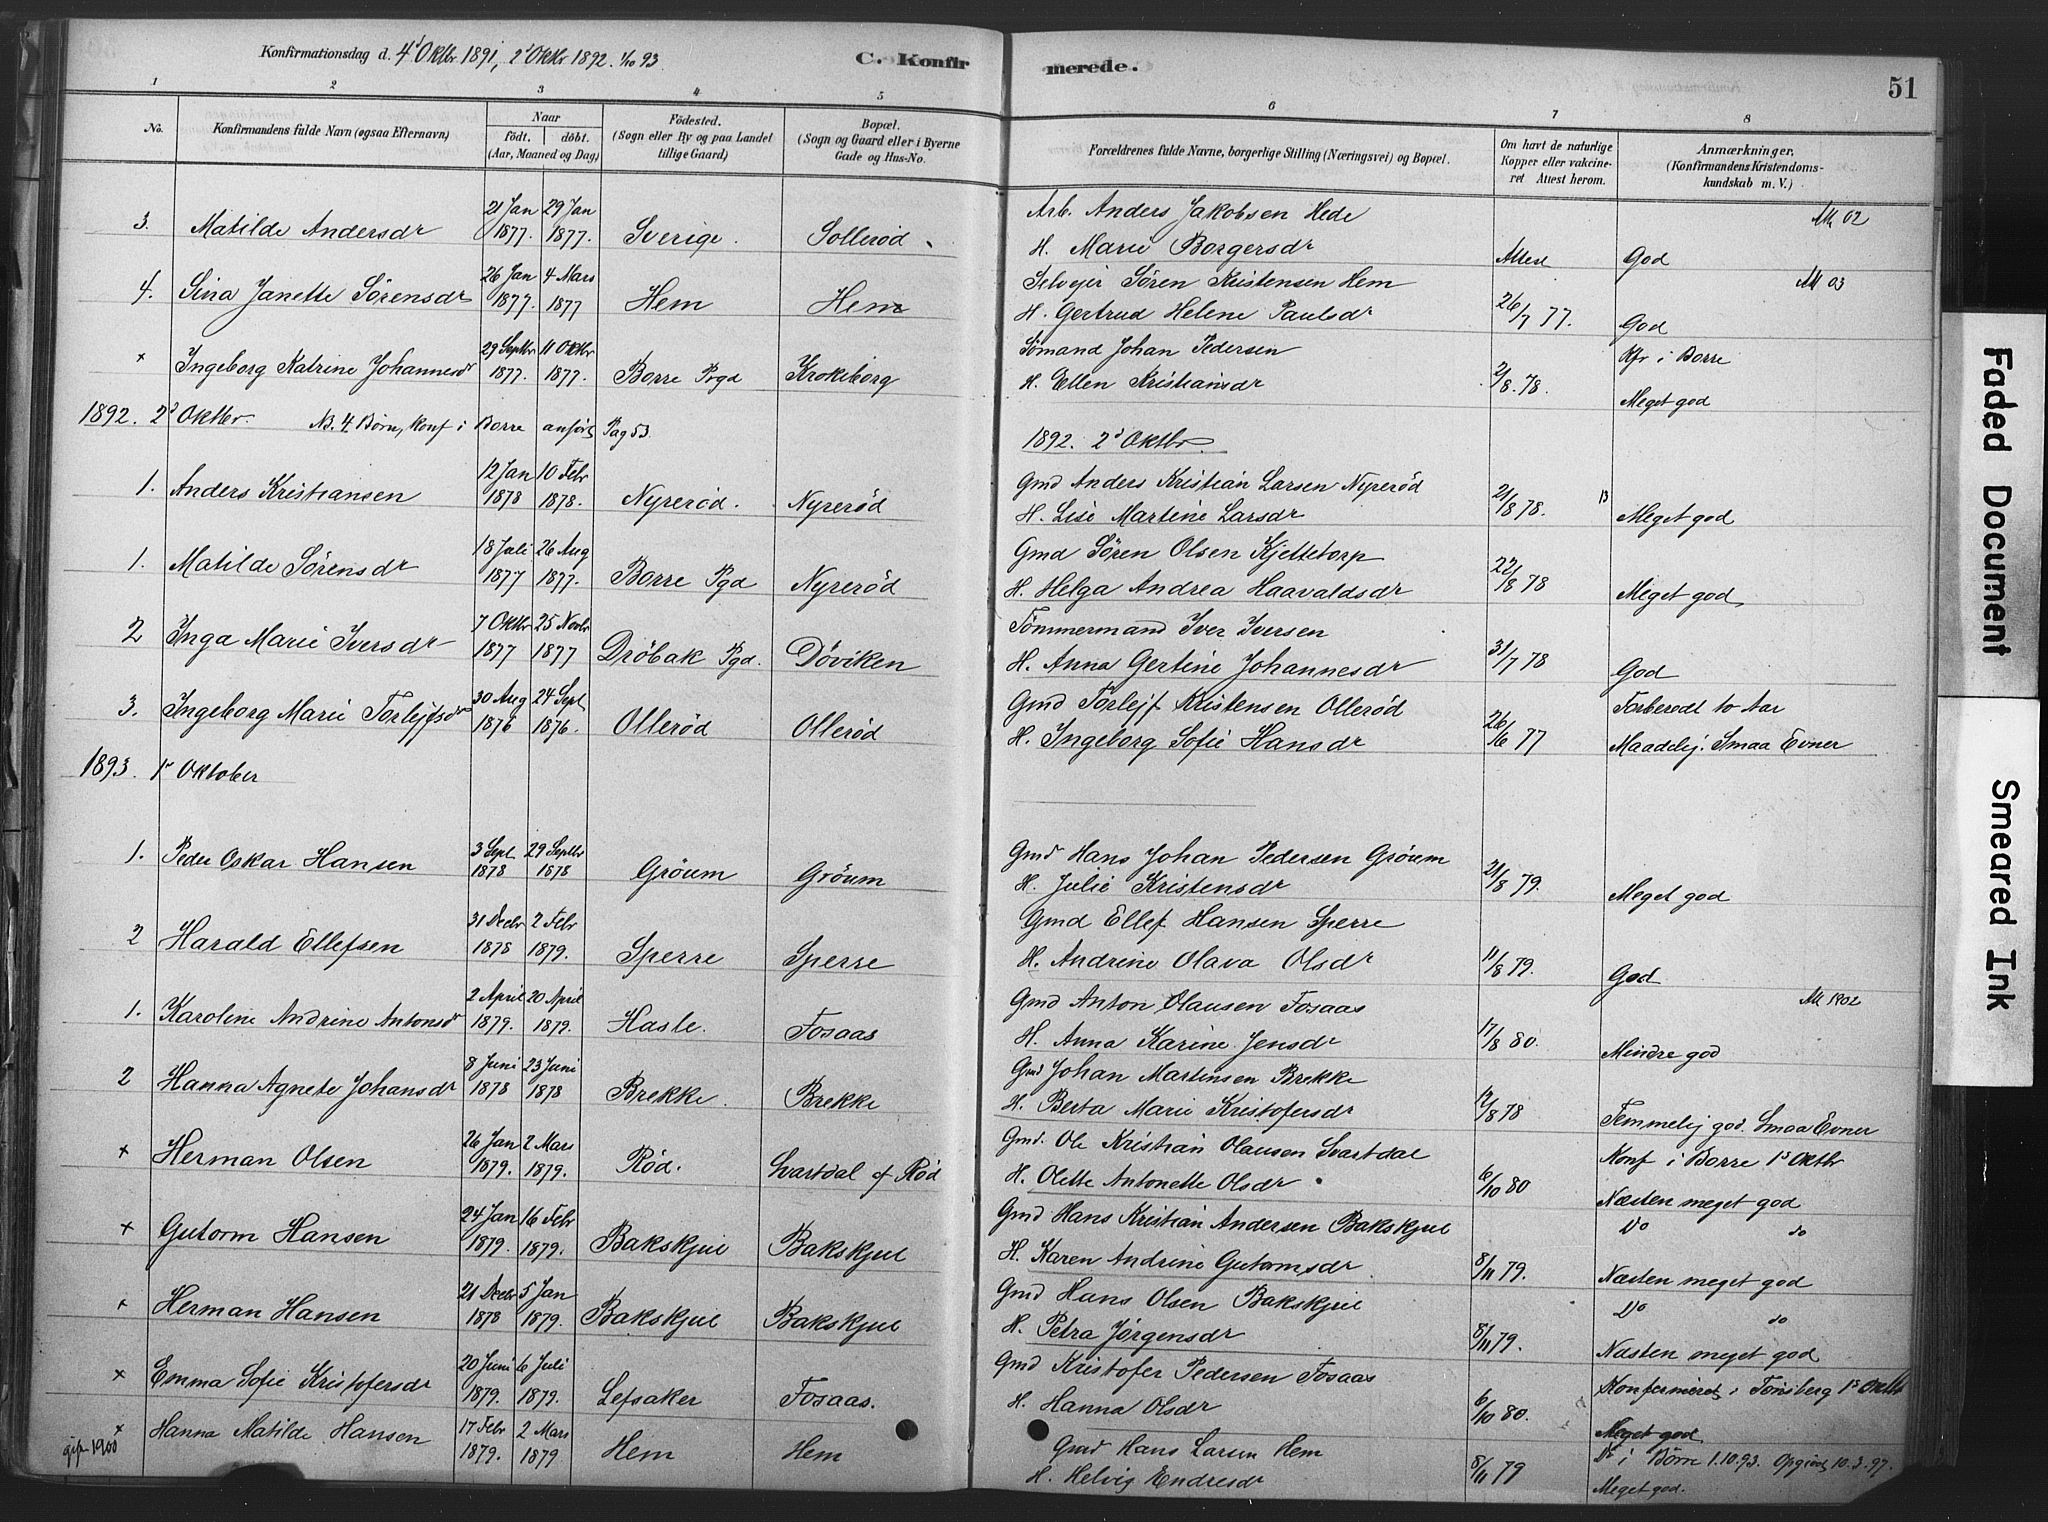 Konfirmationsdag d. 4d Oktbr 1891, 2d Oktbr 1892. 1/10 93
C. Konfirmerede.
51
1 2 3 4 5 6 7 8
No.
Konfirmandens fulde Navn (ogsaa Efternavn)
Naar
født. døbt.
(Aar, Maaned og Dag)
Fødested.
(Sogn eller By og paa Landet
tillige Gaard)
Bopæl.
(Sogn og Gaard eller i Byerne
Gade og Hus-No.
Forældrenes fulde Navne, borgerlige Stilling (Næringsvei) og Bopæl.
Om havt de naturlige
Kopper eller vakcine-
ret Attest herom.
Anmærkninger.
(Konfirmandens Kristendoms-
kundskab m. V.)
21 Jan 29 Jan Arb. Anders Jakobsen Hede 02
3. Matilde Andersdr 1877. 1877. Sverige. Sollerød H. Marie Borgersdr Attest God
26 Jan 4 Mars Selvejer Sören Kristensen Hem 03
4. Sina Janette Sörensdr 1877. 1877 Hem Hem H. Gertrud Helene Paulsdr 26/7 77. God
29 Septbr 11 Oktbr Sömand Johan Pedersen Kfr i Borre
x Ingeborg Katrine Johannesdr 1877. 1877. Borre Pgd Krokeborg H. Ellen Kristiansdr 2/8. 78. Meget god
1892. 2d Oktbr. NB. 4 Børn, konf i Borre anført Pag 53.
1892. 2d Oktbr.
12 Jan 10 Febr Gmd Anders Kristian Larsen Nyrerød
1. Anders Kristiansen 1878 1878. Nyrerød. Nyrerød H. Lise Martine Larsdr 21/8 78. 13 Meget god
18 Juli 26 Aug Gmd Sören Olsen Kjettetorp
1. Matilde Sörensdr 1877 1877. Borre Pgd Nyrerød H. Helga Andrea Haavaldsdr 22/8 78 Meget god
7 Oktbr 25 Novbr Tömmermand Iver Iversen
2 Inga Marie Iversdr 1877 1877 Dröbak Pgd. Döviken H. Anna Gertine Johannesdr 31/7 78 God
30 Aug 24 Sept Gmd Torlejf Kristensen Ollerød Forberedt to Aar
3. Ingeborg Marie Torlejfsdr 1876 1876. Ollerød Ollerød H. Ingeborg Sofie Hansdr 26/6 77 Maadelij. Smaa Evner
1893. 1st Oktober
3 Sept 29 Septbr Gmd Hans Johan Pedersen Gröum
1. Peder Oskar Hansen 1878 1878 Gröum Gröum H. Julie Kristensdr 21/8 79. Meget god
31 Decbr 2 Febr Gmd Ellef Hansen Sperre
2 Harald Ellefsen 1878 1879. Sperre Sperre H. Andrine Olava Olsdr 11/8 79. God
2 April 20 April Gmd Anton Olausen Fosaas 1902
1. Karoline Andrine Antonsdr 1879. 1879. Hasle. Fosaas H. Anna Karine Jensdr 17/8 80. Mindre god
8 Juni 23 Juni Gmd Johan Martinsen Brekke
2 Hanna Agnete Johansdr 1878 1878 Brekke. Brekke H. Berta Marie Kristofersdr 12/8 78 Temmelig god. Smaa Evner
26 Jan 2 Mars Gmd. Ole Kristian Olausen Svartdal Konf i Borre 1s Oktbr
x Herman Olsen 1879. 1879. Rød. Svartdal af Rød H. Olette Antonette Olsdr 6/10 80 Næsten meget god
24 Jan 16 Febr Gmd Hans Kristian Andersen Bakskjul Do do
x Gutorm Hansen 1879. 1879. Bakskjul Bakskjul H. Karen Andrine Gutormsdr 8/11 79. Næsten meget god
21 Decbr 5 Jan Gmd Hans Olsen Bakskjul Do do
x Herman Hansen 1878 1879. Bakskjul Bakskjul H. Petra Jörgensdr 8/11 79. Næsten meget god
20 Juni 6 Juli Gmd Kristofer Pedersen Fosaas Konfermeret i Tönsberg 1s Oktbr
x Emma Sofie Kristofersdr 1879. 1879. Lefsaker Fosaas. H. Hanna Olsdr 6/10 80. Meget god
17 Febr 2 Mars Gmd Hans Larsen Hem Do i Börre 1.10.93. 10.3.97.
gift 1900 x Hanna Matilde Hansen 1879. 1879 Hem Hem H. Helvig Endresdr 8/11 79 Meget god.
Faded Document
Smeared Ink